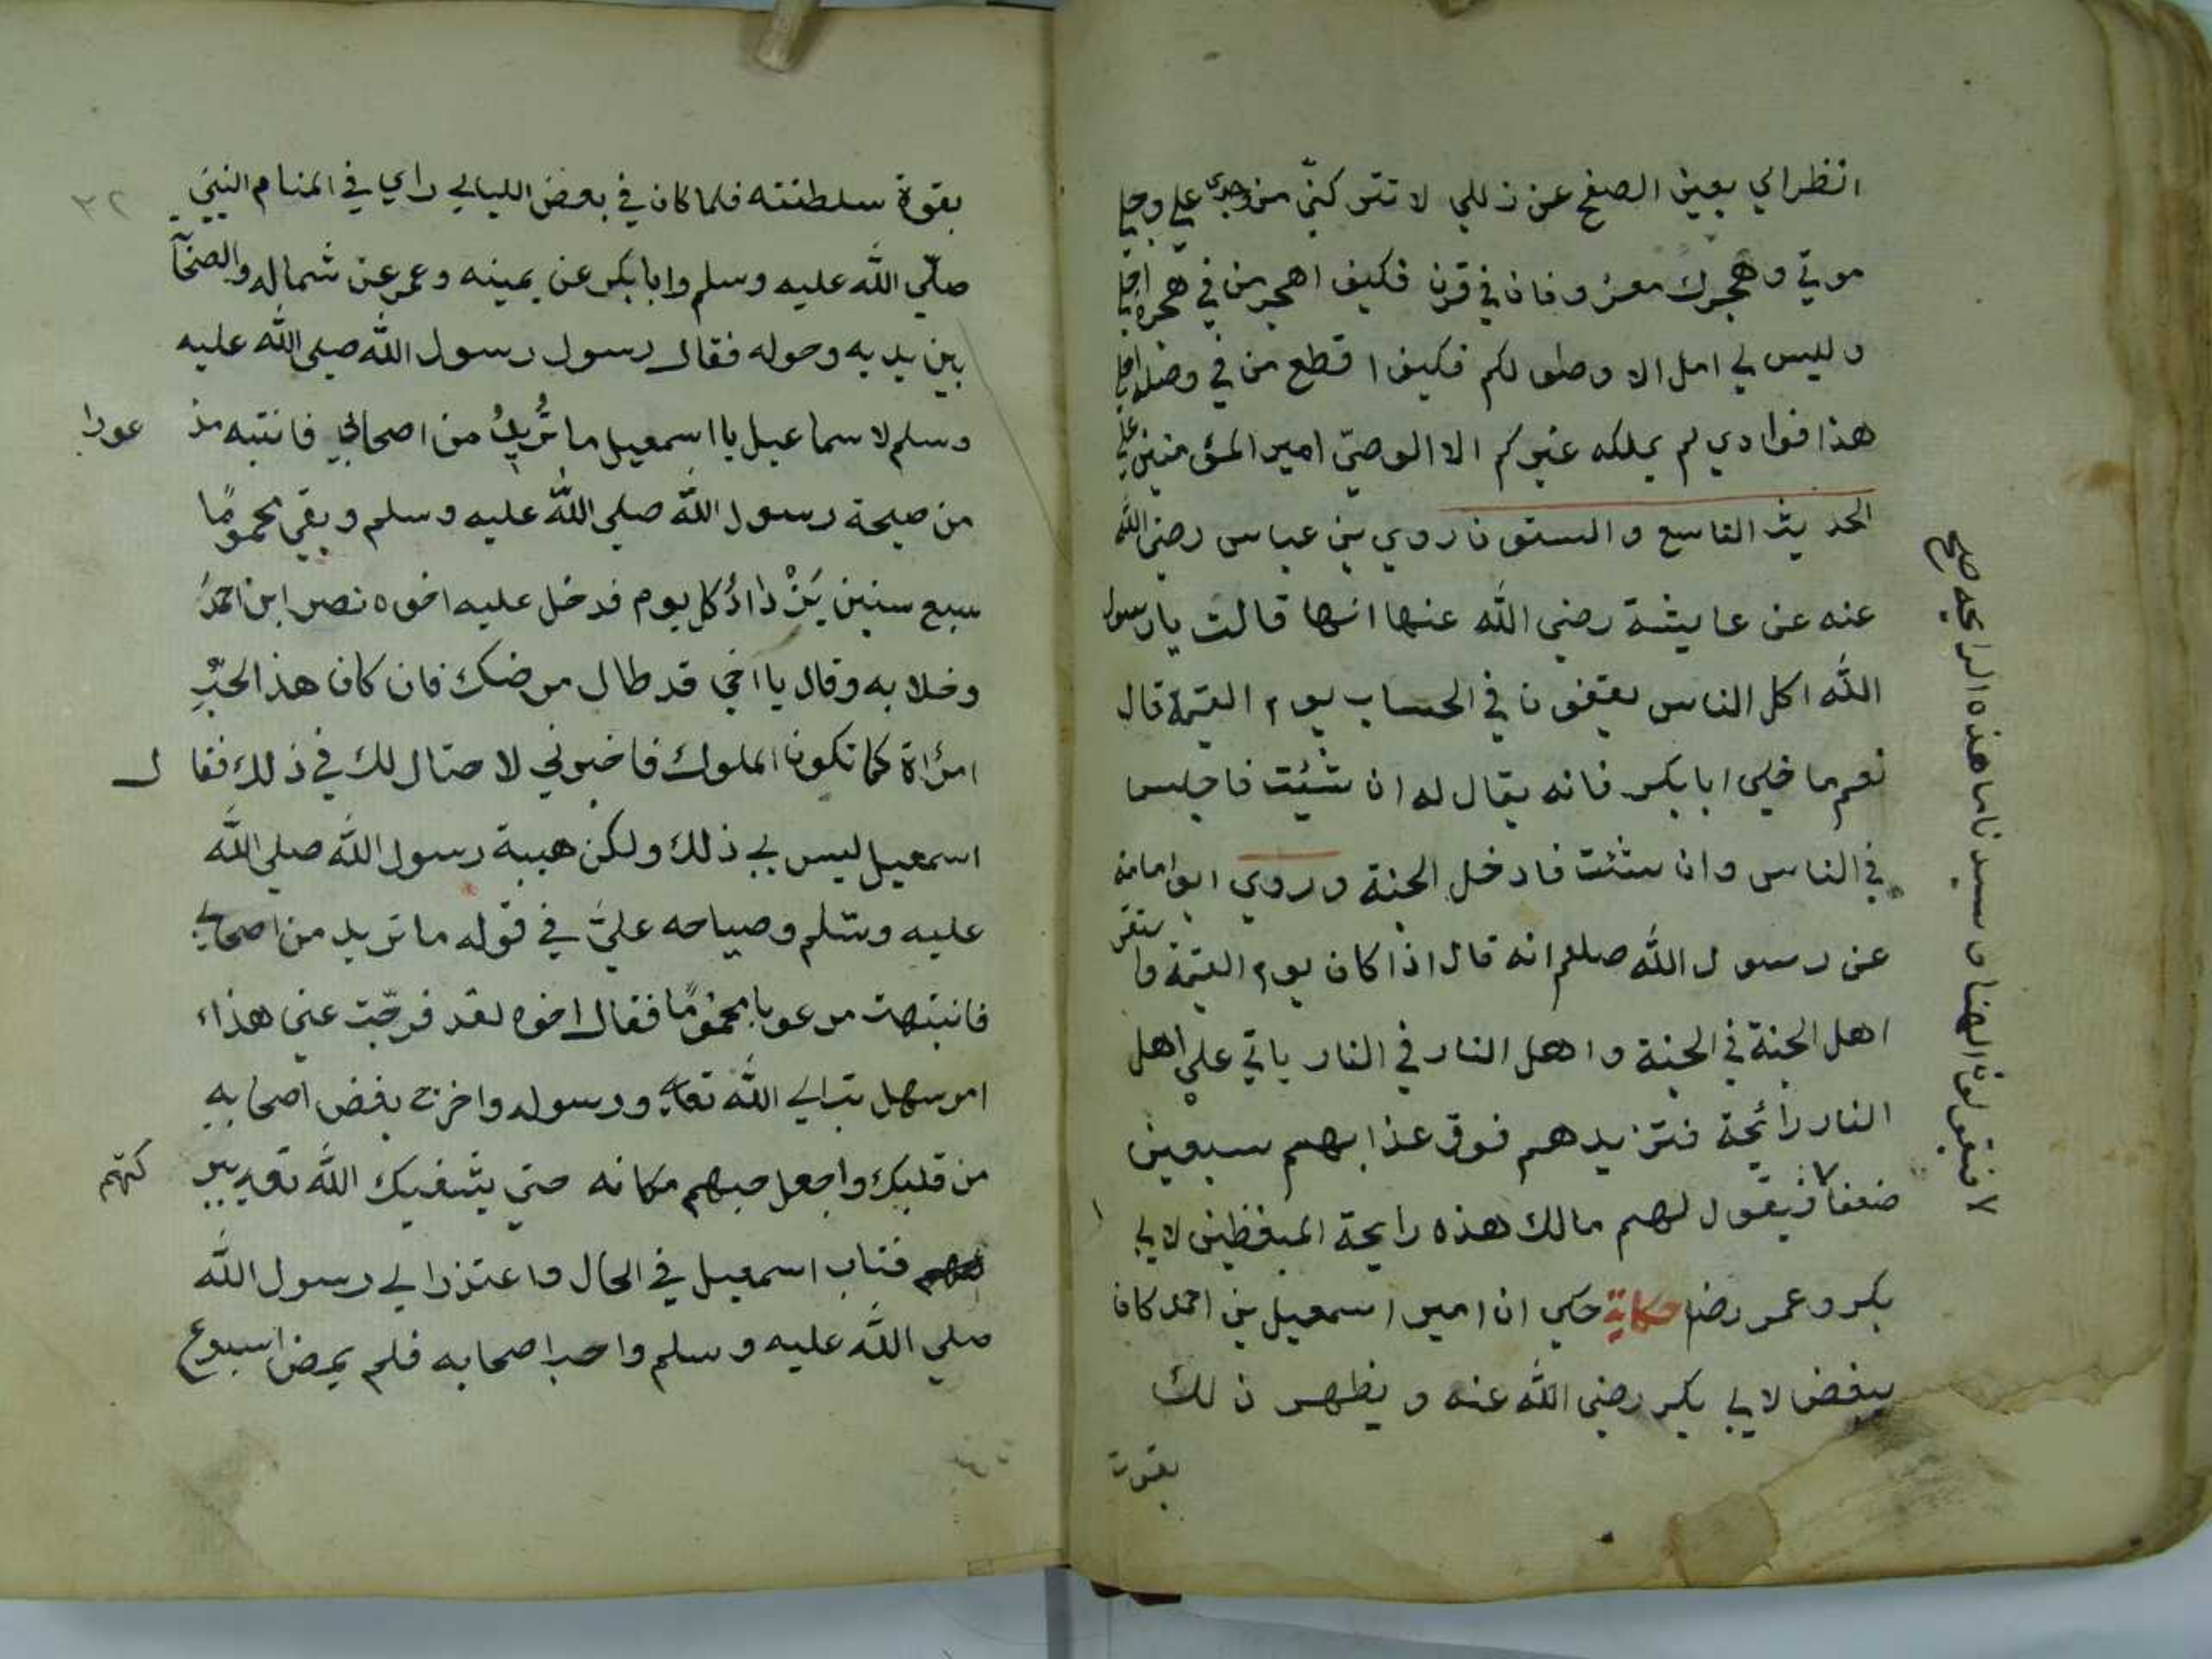 انظر الي بعين الصفح عن زللي لا تتركنّي من وجدي علي وجل
موتي وهجرك مقرونان في قرن فكيف اهجر من في هجره اجلي
وليس لي امل الا وصولكم فكيف اقطع من في وصله املي
هذا فوادي لم يملكه غيركم الا الوصيّ امير المؤمنين علي
الحديث التاسع والستون روي بن عباس رضي الله
عنه عن عايشة رضي الله عنها انها قالت يا رسول
الله اكل الناس يقفون في الحساب يوم القيمة قال
نعم ما خلي ابا بكر فانه يقال له ان شئت فاجلس
في الناس وان شئت فادخل الجنة وروي ابو امامة
عن رسول الله صلعم انه قال اذا كان يوم القيمة واستقر
اهل الجنة في الجنة واهل النار في النار ياتي علي اهل
النار رائحة فتزيدهم فوق عذابهم سبعين
ضعفا فيقول لهم مالك هذه رايحة المبغظين لابي
بكر وعمر رضا حكاية حكي ان امير اسمعيل بن احمد كان
يبغض لابي بكر رضي الله عنه ويظهر ذلك
بقوت
لا فيقولون الهنا وسيدنا ما هذه الرايحة صح
٣٢
بقوة سلطنته فلما كان في بعض الليالي راي في المنام النبي
صلّي الله عليه وسلم وابا بكر عن يمينه وعمر عن شماله والصحا
بين يديه وحوله فقال رسول رسول الله صلي الله عليه
وسلم لاسماعيل يا اسمعيل ما تُريدُ من اصحابي فانتبه مذ عورا
من صيحة رسول الله صلي الله عليه وسلم وبقي محمومًا
سبع سنين يَزْدَادُ كل يوم فدخل عليه اخوه نصر ابن احمد
وخلا به وقال يا اخي قد طال مرضك فان كان هذ الحبّ
امراة كما تكون الملوك فاخبرني لاحتال لك في ذلك فقا ل
اسمعيل ليس بي ذلك ولكن هيبة رسول الله صلي الله
عليه وسلم وصياحه عليّ في قوله ما تريد من اصحابي
فانتبهت مرعوبا محمومًا فقال اخوه لقد فرجّت عني هذا
امر سهل تب الي الله تعالي ورسوله واخرج بغض اصحابه
من قلبك واجعل حبهم مكانه حتي يشفيك الله تعه ببر كتهم
فتاب اسمعيل في الحال واعتذر الي رسول الله
صلي الله عليه وسلم واحب اصحابه فلم يمض اسبوع